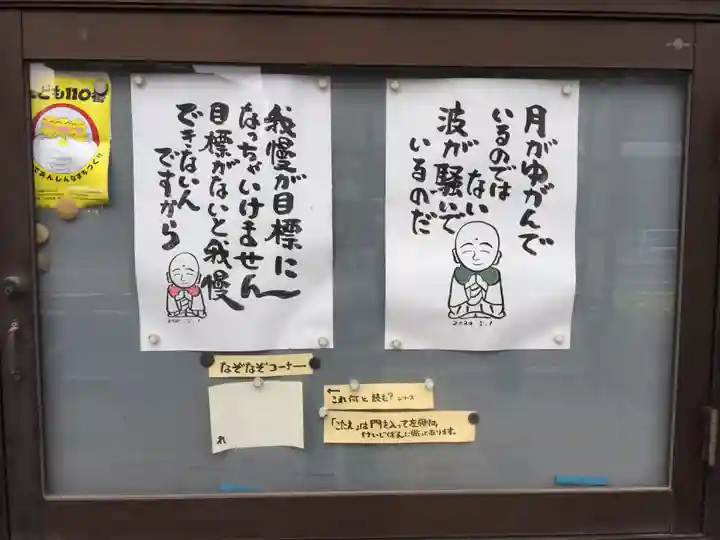 月がゆがんで
いるのでは
ない
波が騒いで
いるのだ
2020 5.1
我慢が目標に
なっちゃいけません
目標がないと、我慢
できないん
ですから
2020 5.1
こども110番
なぞなぞコーナー
れ
←
これ何と読む? シリーズ
「こたえ」は門を入って左側の、
けいじばんに貼ってあります。